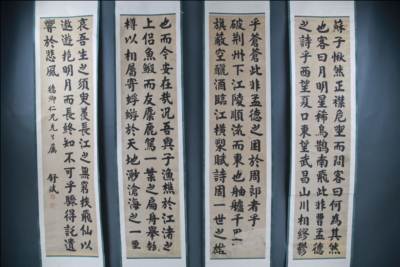 蘇子愀然正襟危坐而問客曰何為其然
也客曰月明星稀烏鵲南飛此非曹孟德
之詩乎西望夏口東望武昌山川相繆鬱
乎蒼蒼此非孟德之困於周郎者乎
破荆州下江陵順流而東也舳艫千里
旗蔽空釃酒臨江橫槊賦詩固一世之雄
也而今安在哉況吾與子漁樵於江渚之
上侶魚鰕而友麋鹿駕一葉之扁舟舉匏
樽以相屬寄蜉蝣於天地渺滄海之一粟
哀吾生之須臾羨長江之無窮挾飛仙以
遨遊抱明月而長終知不可乎驟得託遺
響於悲風
仁兄
屬
舒